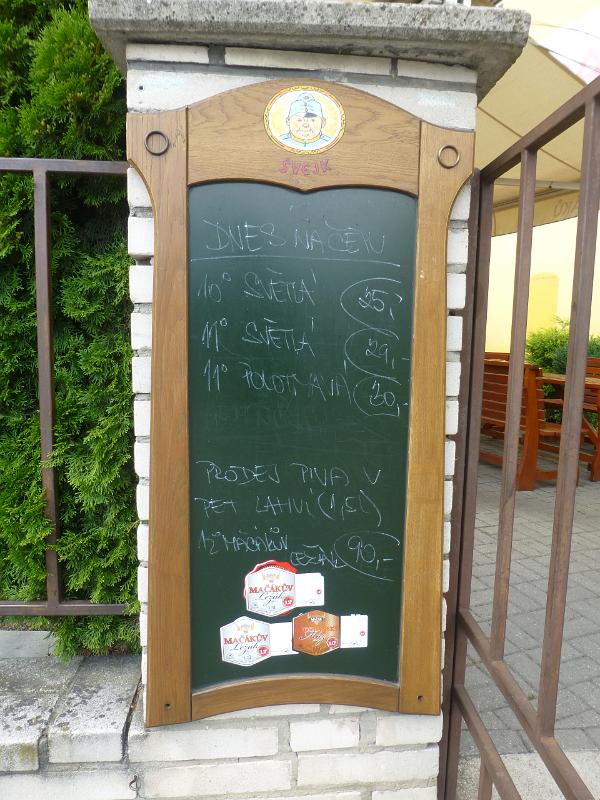 ŠVEJK
DNES NA ČEPU
10° SVĚTLÁ 25,-
11° SVĚTLÁ 29,-
11° POLOTMAVÁ 30,-
PRODEJ PIVA V
PET LAHVI (1,5L)
12° MAČÁKŮV
LEŽÁK 90,-
MAČÁKŮV
Ležák
MAČÁKŮV
Ležák